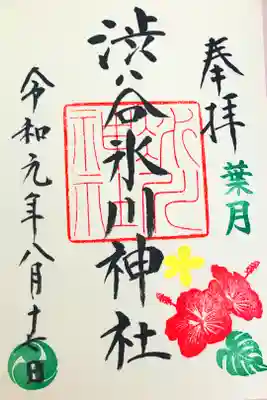 奉拝
葉月
渋谷氷川神社
令和元年八月十七日